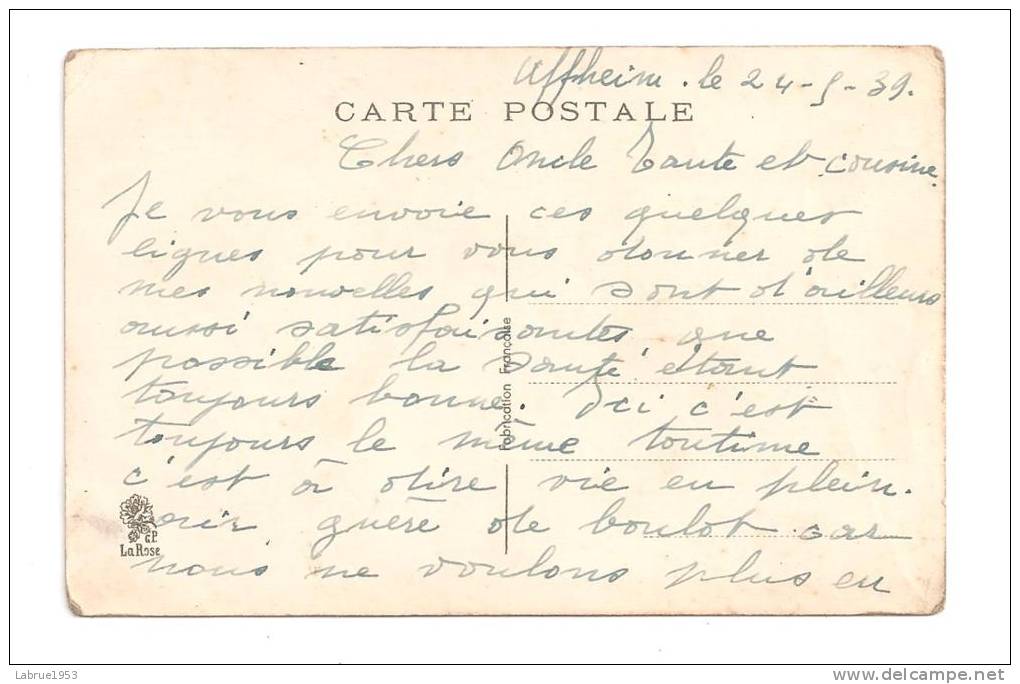 Uffheim . le 24-5-39.
CARTE POSTALE
Chers Oncle Tante et cousine.
Je vous envoie ces quelques
lignes pour vous donner de
mes nouvelles qui sont d'ailleurs
aussi satisfaisantes que
possible la santé étant
toujours bonne. Ici c'est
toujours le même toutime
c'est à dire vie en plein.
air guère de boulot car
nous ne voulons plus en
Fabrication Française
G.P.
La Rose
Labrue1953
delcampe.net